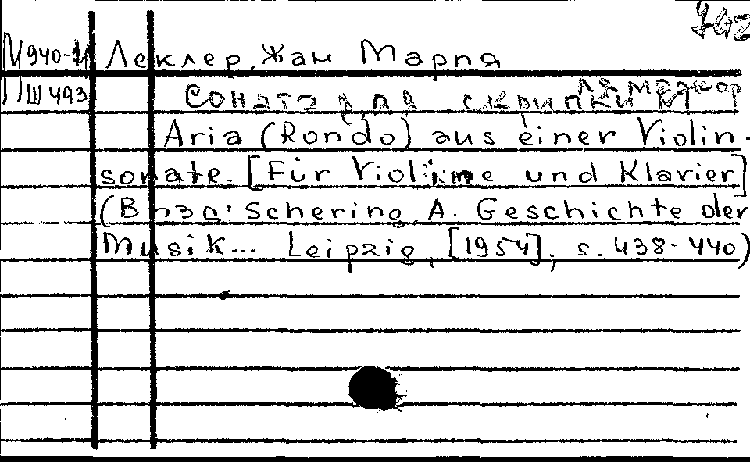 М940-4 Леклер, Жан Мария
Ш493 Соната для скрипки
Ля мажор
Aria (Rondo) aus einer Violin-
sonate. [Für Violine und Klavier]
(В изд: Schering, A. Geschichte der
Musik... Leipzig, [1954], s. 438-440)